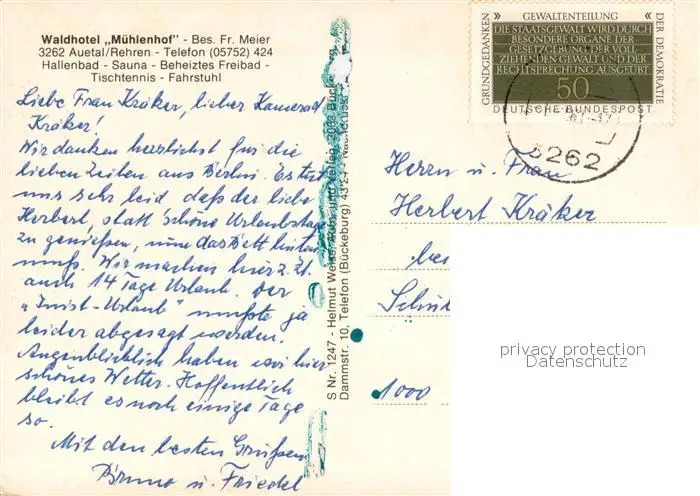 Waldhotel „Mühlenhof" - Bes. Fr. Meier
3262 Auetal/Rehren - Telefon (05752) 424
Hallenbad - Sauna - Beheiztes Freibad -
Tischtennis - Fahrstuhl
Liebe Frau Kräker, lieber Kamerad
Kräker!
Wir danken herzlichst für die
lieben Zeilen aus Berlin. Es tut
uns sehr leid, daß der liebe
Herbert, statt schöne Urlaubstage
zu genießen, nun das Bett hüten
muß. Wir machen hier z. Zt.
auch 14 Tage Urlaub. Der
"-Urlaub" mußte ja
leider abgesagt werden.
Augenblicklich haben wir hier
schönes Wetter. Hoffentlich
bleibt es noch einige Tage
so.
Mit den besten Grüßen
Bruno u. Friedel
S Nr. 1247 - Helmut Weiss, und Verlag, 3062 Bückeburg
Dammstr. 10, Telefon (Bückeburg) 43
GRUNDGEDANKEN
» GEWALTENTEILUNG «
DER DEMOKRATIE
DIE STAATSGEWALT WIRD DURCH
BESONDERE ORGANE DER
GESETZGEBUNG DER VOLL
ZIEHENDEN GEWALT UND DER
RECHTSPRECHUNG AUSGEÜBT
50
DEUTSCHE BUNDESPOST
3262
Herrn u. Frau
Herbert Kräker
1000
privacy protection
Datenschutz